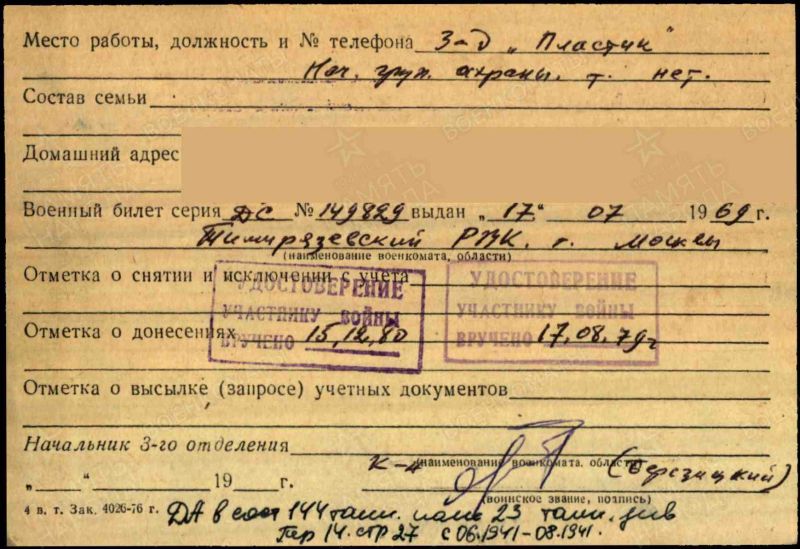 Место работы, должность и № телефона З-д „Пластик"
Нач. груп. охраны. т. нет.
Состав семьи
Домашний адрес
Военный билет серия ДС № 149829 выдан „17" 07 1969 г.
Тимирязевский РВК. г. Москвы
(наименование военкомата, области)
Отметка о снятии и исключении с учета
УДОСТОВЕРЕНИЕ
УЧАСТНИКУ ВОЙНЫ
ВРУЧЕНО 15,12,80
УДОСТОВЕРЕНИЕ
УЧАСТНИКУ ВОЙНЫ
ВРУЧЕНО 17.08.79г
Отметка о донесениях
Отметка о высылке (запросе) учетных документов
Начальник 3-го отделения
(наименование военкомата, области)
„ " 19 г.
(воинское звание, подпись)
4 в. т. Зак. 4026-76 г.
ДА в сост 144 танк. полк 23 танк. див
Пер 14. стр 27 с 06.1941-08.1941.